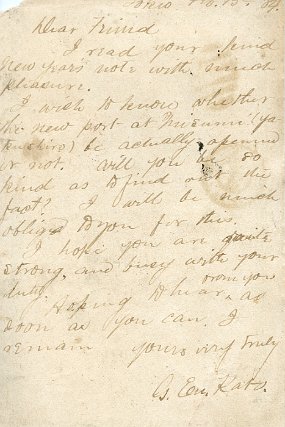 Dear Friend
I read your kind
New years note with much
pleasure.
I wish to know whether
the new port at Misumi (ya
be actually opened
or not. Will you be so
kind as to find out the
fact? I will be much
obliged to you for this.
I hope you are quite
strong, and busy with your
duty.
Hoping to hear from you as
soon as you can, I
remain yours very truly